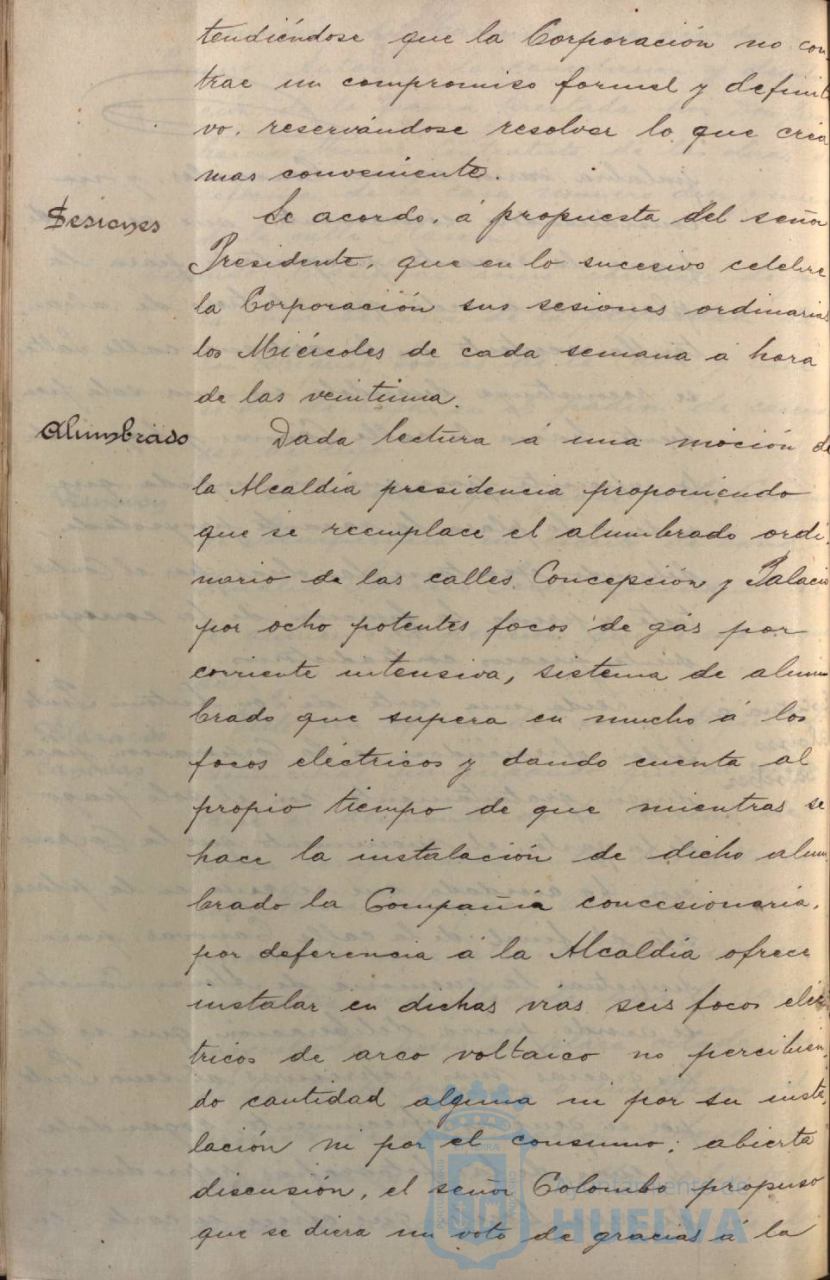 tendiéndose que la Corporación no con-
trae un compromiso formal y definiti
vo, reservándose resolver lo que crea
mas conveniente.
Sesiones
Se acordo, á propuesta del señor
Presidente, que en lo sucesivo celebre
la Corporación sus sesiones ordinarias
los Miércoles de cada semana á hora
de las veintiuna.
Alumbrado
Dada lectura á una moción de
la Alcaldía presidencia proponiendo
que se reemplace el alumbrado ordi-
nario de las calles Concepción y Palacio
por ocho potentes focos de gás por
corriente intensiva, sistema de alum
brado que supera en mucho á los
focos eléctricos y dando cuenta al
propio tiempo de que mientras se
hace la instalación de dicho alum
brado la Compañía concesionaria,
por deferencia á la Alcaldía ofrece
instalar en dichas vías seis focos eléc
tricos de arco voltaico no percibien-
do cantidad alguna ni por su insta-
lación ni por el consumo; abierta
discusión, el señor Colombo propuso
que se diera un voto de gracias á la
Ayuntamiento de
HUELVA